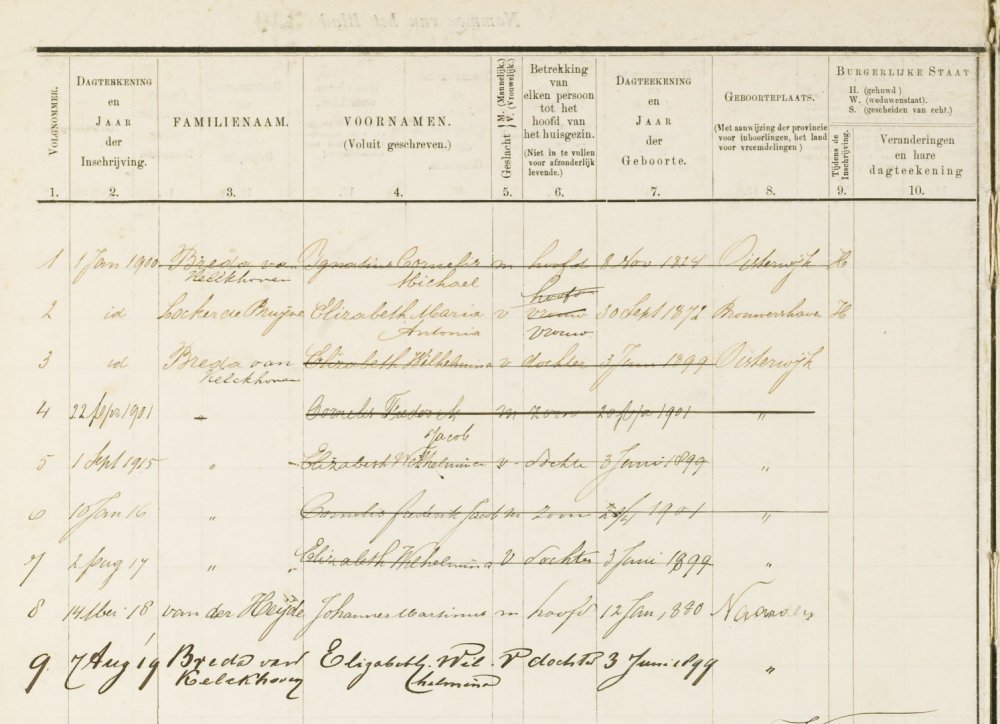 VOLGNOMMER.
DAGTEEKENING en JAAR der Inschrijving.
FAMILIENAAM.
VOORNAMEN. (Voluit geschreven.)
Geslacht { M. (Mannelijk.) V. (Vrouwelijk.)
Betrekking van elken persoon tot het hoofd van het huisgezin. (Niet in te vullen voor afzonderlijk levende.)
DAGTEEKENING en JAAR der Geboorte.
GEBOORTEPLAATS. (Met aanwijzing der provincie voor inboorlingen, het land voor vreemdelingen)
BURGERLIJKE STAAT
H. (gehuwd)
W. (weduwenstaat).
S. (gescheiden van echt.)
Tijdens de Inschrijving.
Veranderingen en hare dagteekening
1. 2. 3. 4. 5. 6. 7. 8. 9. 10.
1 1 Jan 1900 Breda van Ignatius Cornelis m hoofd 8 Nov 1824 Oisterwijk H
Kelckhoven Michael
hoofd
2 id Locker de Bruijne Elizabeth Maria v vrouw 30 Sept 1872 Brouwershaven H
Antonia vrouw
3 id Breda van Elizabeth Wilhelmina v dochter 3 Juni 1899 Oisterwijk
Kelckhoven
4 22 Apr 1901 " Cornelis Frederik m zoon 20 Apr 1901 "
Jacob
5 1 Sept 1915 " Elizabeth Wilhelmina v dochter 3 Juni 1899 "
6 10 Jan 16 " Cornelis frederik Jacob m zoon 20/4 1901 "
7 2 Aug 17 " Elizabeth Wilhelmina v dochter 3 Juni 1899 "
8 14 Mei 18 van der Heijde Johannes Martinus m hoofd 12 Jan, 880 Naarden
9. 7 Aug 19 Breda van Elizabeth Wil- V dochter 3 Juni 1899 "
Kelckhoven helmina